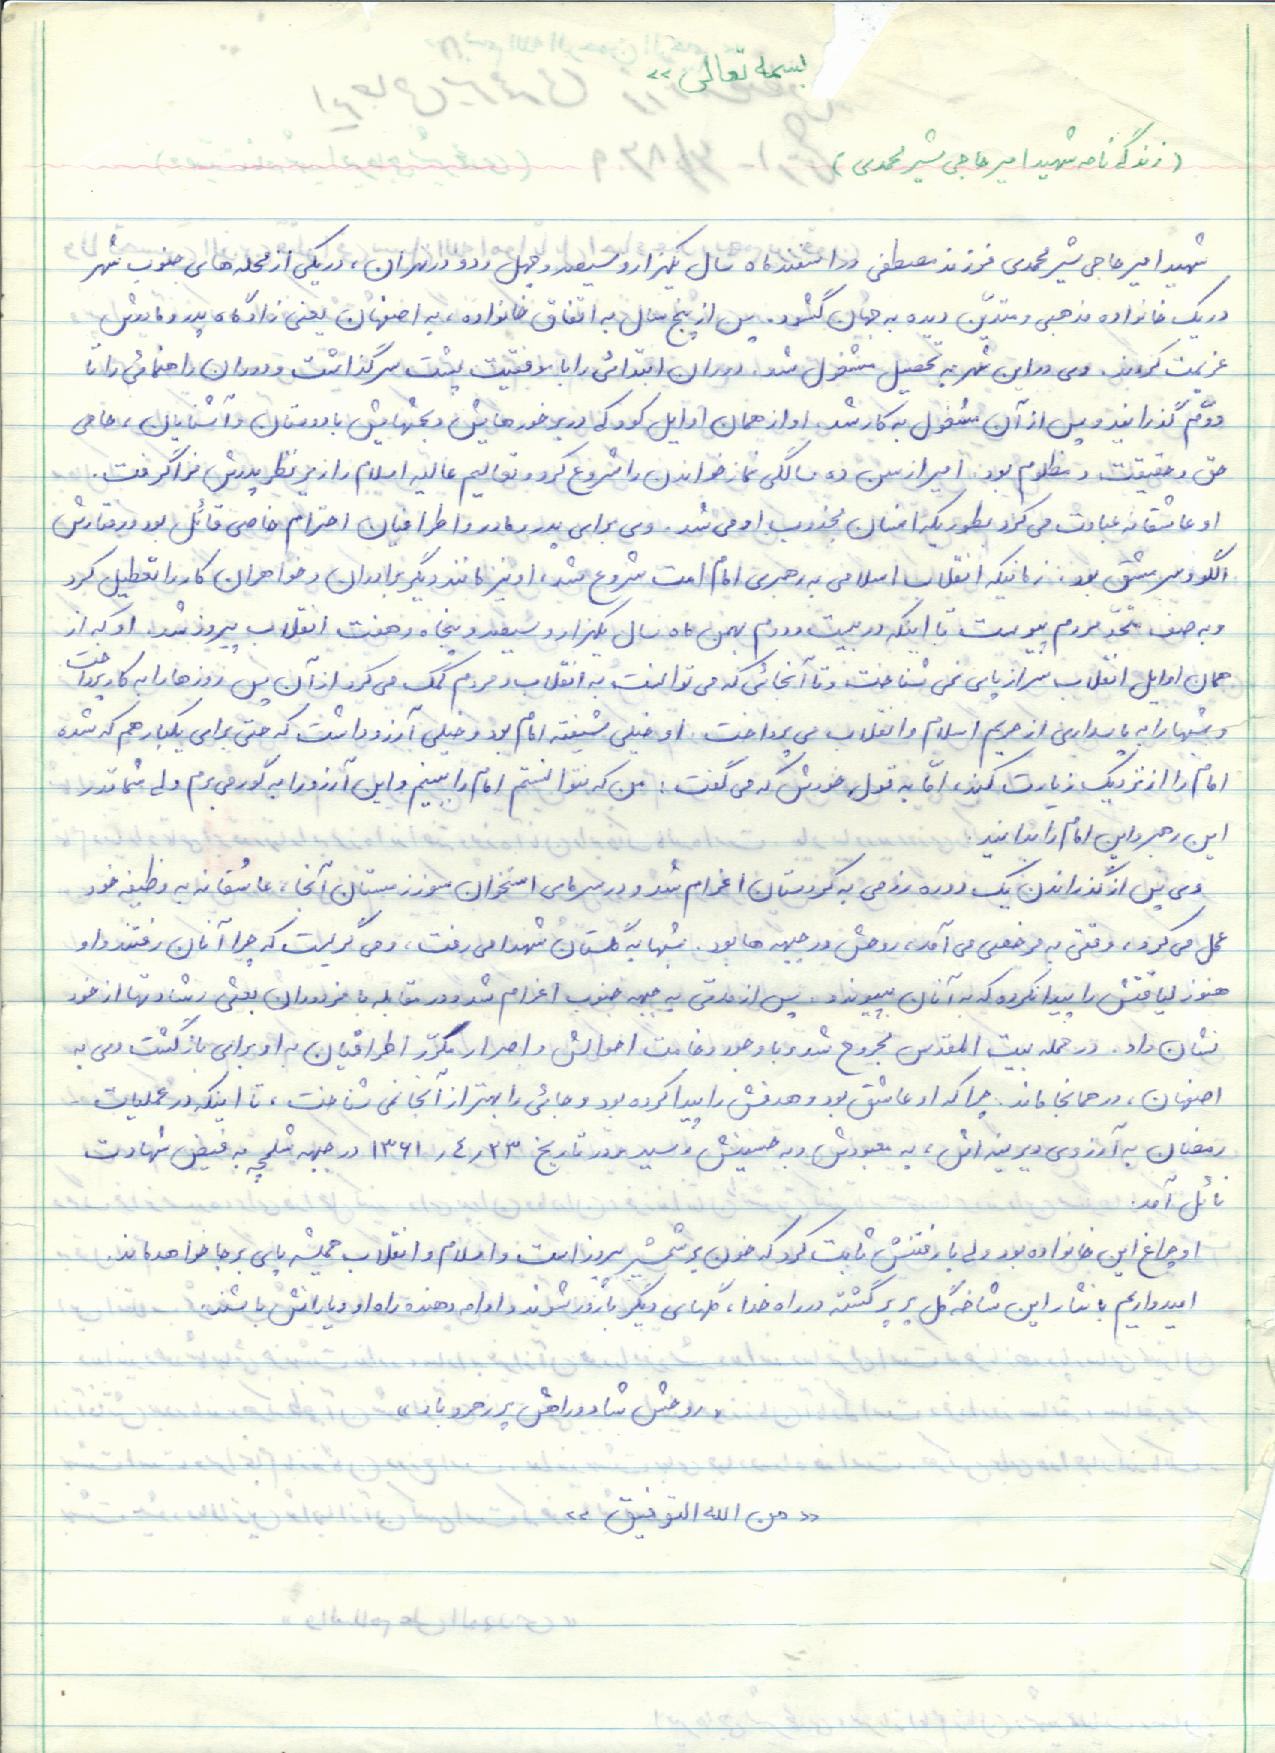 بسمه تعالی »
(زندگی نامه شهید امیر حاجی شیر محمدی)
شهید امیر حاجی شیر محمدی فرزند مصطفی در اسفند ماه سال یکهزار و سیصد و چهل و دو در تهران، در یکی از محله های جنوب شهر
در یک خانواده مذهبی و متدیّن دیده به جهان گشود. پس از پنج سال به اتفاق خانواده، به اصفهان یعنی زادگاه پدر و مادرش
عزیمت کردند. وی در این شهر به تحصیل مشغول شد. دوران ابتدائی را با موفقیت پشت سر گذاشت و دوران راهنمائی را تا
دوّم گذرانید و پس از آن مشغول به کار شد. او از همان اوایل کودکی در برخوردهایش و بحثهایش با دوستان و آشنایان، حامی
حق و حقیقت و مظلوم بود. امیر از سن ده سالگی نماز خواندن را شروع کرد و تعالیم عالیه اسلام را از زیر نظر پدرش فرا گرفت.
او عاشقانه عبادت می کرد بطوریکه انسان مجذوب او می شد. وی برای پدر و مادر و اطرافیان احترام خاصی قائل بود و رفتارش
الگو و سرمشق بود. زمانیکه انقلاب اسلامی به رهبری امام امت شروع شد، او نیز مانند دیگر برادران و خواهران کار را تعطیل کرد
و به صف متحد مردم پیوست تا اینکه در بیست و دوم بهمن ماه سال یکهزار و سیصد و پنجاه و هفت انقلاب پیروز شد. او که از
همان اوایل انقلاب سر از پای نمی شناخت و تا آنجائی که می توانست به انقلاب و مردم کمک می کرد از آن پس روزها را به کار پرداخت
و شبها را به پاسداری از حریم اسلام و انقلاب می پرداخت. او خیلی شیفته امام بود و خیلی آرزو داشت که حتی برای یکبار هم که شده
امام را از نزدیک زیارت کند، امّا به قول خودش که می گفت: من که نتوانستم امام را ببینم و این آرزو را به گور می برم ولی شما قدر
این رهبر و این امام را بدانید.
وی پس از گذراندن یک دوره رزمی به کردستان اعزام شد و در سرمای استخوان سوز زمستان آنجا، عاشقانه به وظیفه خود
عمل می کرد، وقتی به مرخصی می آمد، روحش در جبهه ها بود. شبها به گلستان شهدا می رفت، و می گریست که چرا آنان رفتند و او
هنوز لیاقتش را پیدا نکرده که به آنان بپیوندد. پس از مدتی به جبهه جنوب اعزام شد و در مقابله با مزدوران بعثی رشادتها از خود
نشان داد. در حمله بیت المقدس مجروح شد و با وجود وخامت احوالش و اصرار مکرّر اطرافیان به او برای بازگشت وی به
اصفهان، در همانجا ماند. چرا که او عاشق بود و هدفش را پیدا کرده بود و جائی را بهتر از آنجا نمی شناخت، تا اینکه در عملیات
رمضان به آرزوی دیرینه اش، به معبودش و به حسینش رسید و در تاریخ ۲۳ر۴ر۱۳۶۱ در جبهه شلمچه به فیض شهادت
نائل آمد.
او چراغ این خانواده بود ولی با رفتنش ثابت کرد که خون بر شمشیر پیروز است و اسلام و انقلاب همیشه پای برجا خواهد ماند.
امیدواریم با نثار این شاخه گل پرپر گشته در راه خدا، گلهای دیگر بارور شوند و ادامه دهنده راه او و یارانش باشند.
«روحش شاد و راهش پر رهرو باد»
« من الله التوفیق »